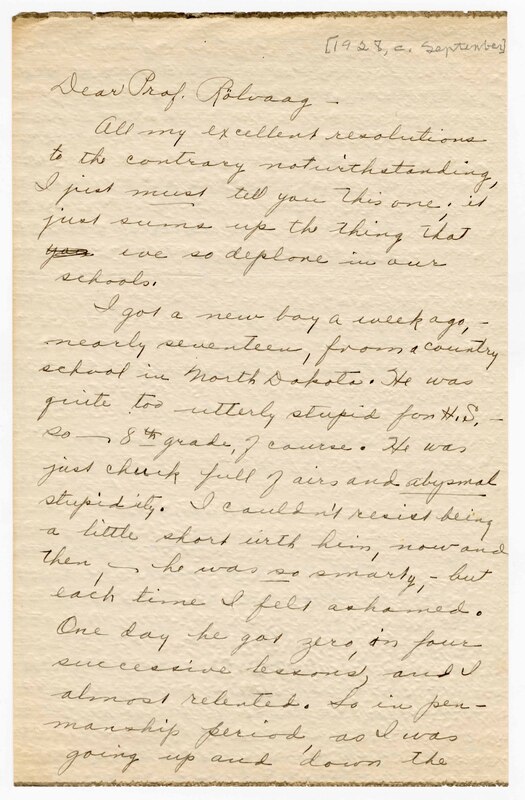 [1928, c. September]
Dear Prof. Rölvaag -
All my excellent resolutions
to the contrary notwithstanding,
I just must tell you this one; it
just sums up th thing that
you we so deplore in our
schools.
I got a new boy a week ago, -
nearly seventeen, from a country
school in North Dakota. He was
quite too utterly stupid for H.S. -
so — 8th grade, of course. He was
just chuck full of airs and abysmal
stupidity. I couldn't resist being
a little short with him, now and
then, — he was so smarty, - but
each time I felt ashamed.
One day he got zero, in four
successive lessons, and I
almost relented. So in pen-
manship period as I was
going up and down the